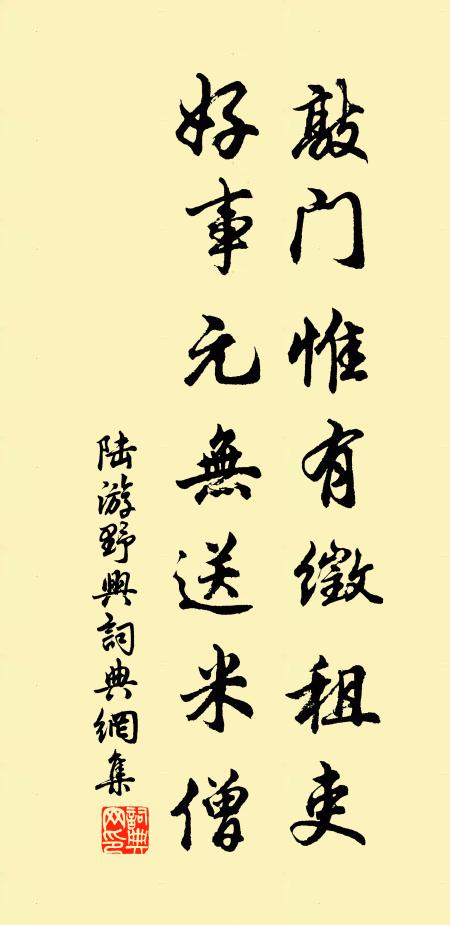 敲门惟有徵租吏
好事元無送米僧
陆游野興詞典網集
詞典网印